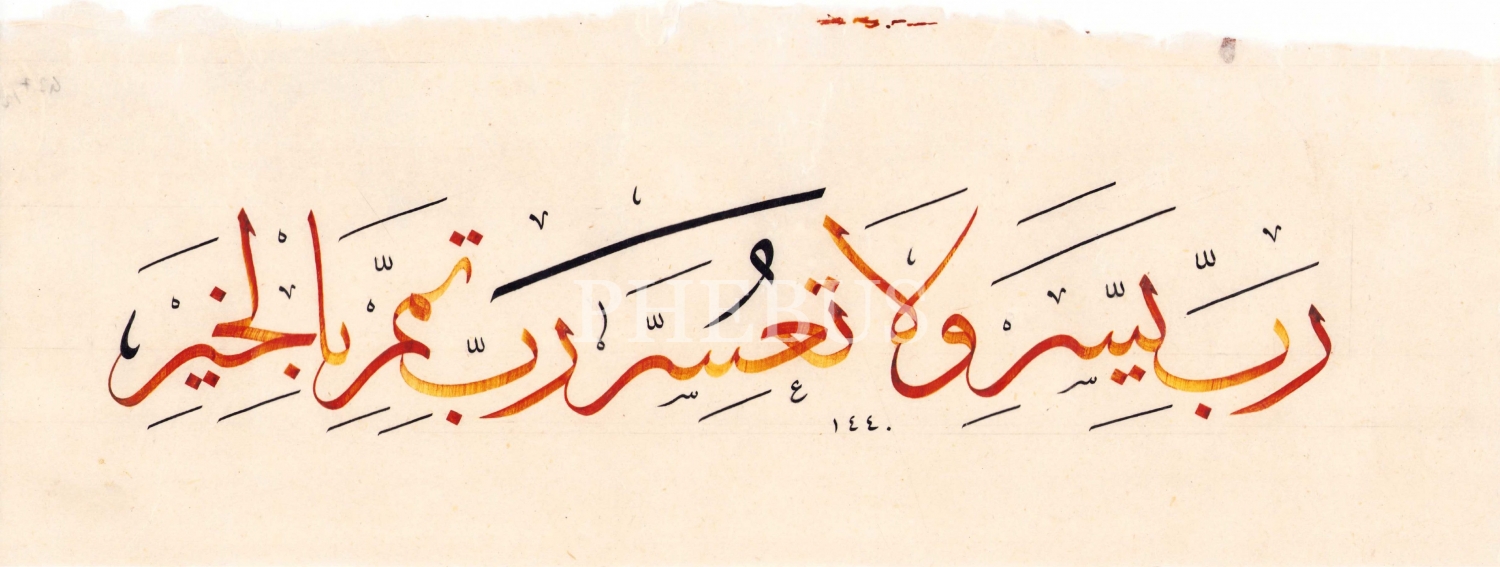 رَبِّ يَسِّرْ وَلَا تُعَسِّرْ رَبِّ تَمِّمْ بِالْخَيْرِ
١٤٤٠
PHEBUS